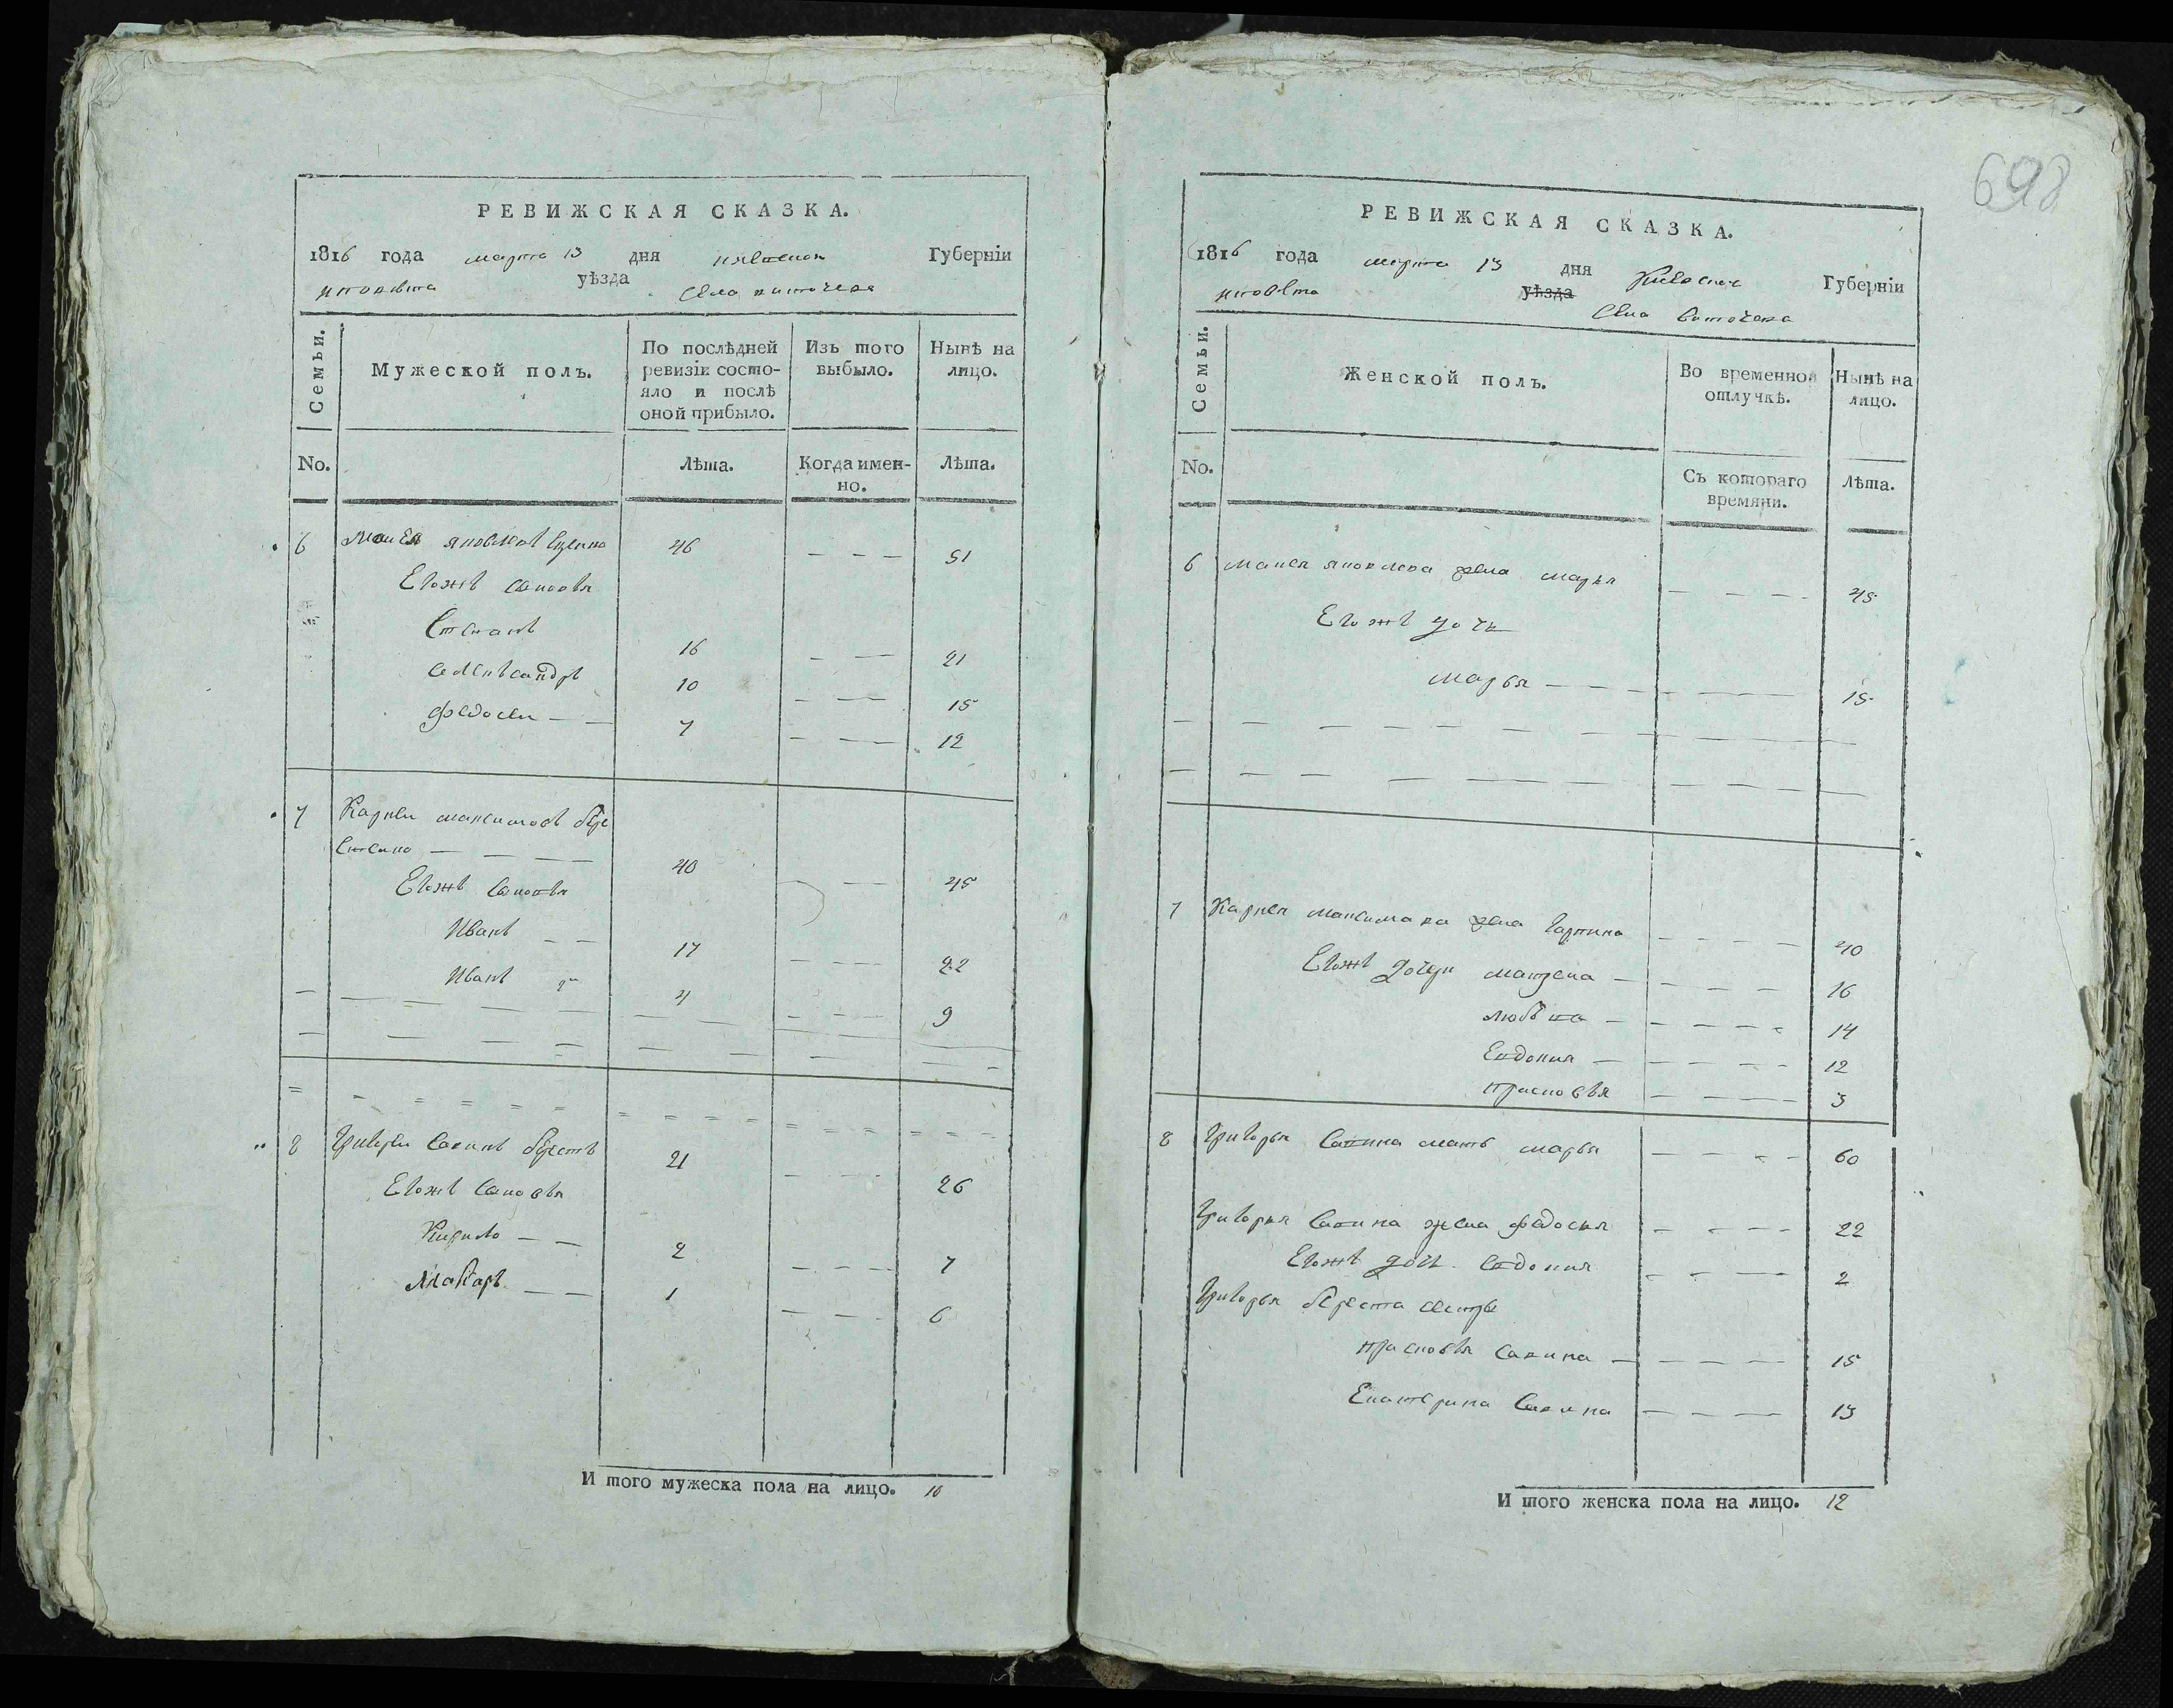 РЕВИЖСКАЯ СКАЗКА.
1816 года марта 13 дня Губерніи
уѣзда Села
Семьи.
Мужеской полъ.
По послѣдней ревизіи состо-
яло и послѣ оной прибыло.
Изъ того выбыло.
Нынѣ на лицо.
No.
Лѣта.
Когда имен-
но.
Лѣта.
6 46 — — — 51
Егожъ сыновья
Степанъ 16 — — 21
10 — — 15
Федосеи — — 7 — — 12
7 Карпеи максимовъ
— — — — 40 — — 45
Егожъ сыновья
Иванъ — — 17 — — — 22
Иванъ 4 — — — 9
8 Григореи Савинъ 21 — — — 26
Егожъ сыновья
Кирило — — 2 — — — 7
Макаръ — — 1 — — — 6
И того мужеска пола на лицо. 10
698
РЕВИЖСКАЯ СКАЗКА.
1816 года марта 13 дня Киевской Губерніи
уѣзда
Села
Семьи.
Женской полъ.
Во временной отлучкѣ.
Нынѣ на лицо.
No.
Съ котораго времяни.
Лѣта.
6 яковлева жена марья — — — 45
Егожъ дочь
марья — — — — 15
7 Карпея максимова жена — — — — 40
Егожъ дочери — — — — 16
— — — — 14
Евдокия — — — — — 12
Прасковья — — — — 3
8 Григорья Савина мать марья — — — — 60
Григорья Савина жена федосья — — — — 22
Егожъ дочь Евдокия — — — 2
Григорья береста сестры
Прасковья Савина — — — — — 15
Екатерина Савина — — — — 13
И того женска пола на лицо. 12